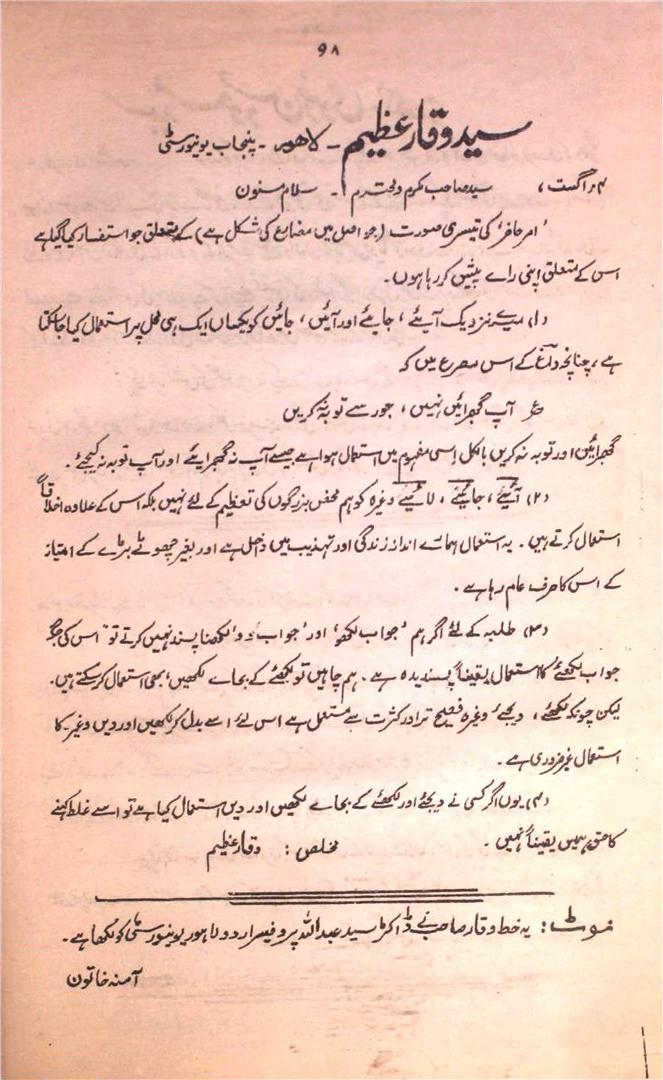 ۹۸
سید وقار عظیم ۔ لاھور ۔ پنجاب یونیورسٹی
۴؍ اگست ، سید صاحب مکرم و محترم ۔ سلام مسنون
'امر حاضر' کی تیسری صورت (جو اصل میں مضارع کی شکل ہے) کے متعلق جو استفسار کیا گیا ہے
اس کے متعلق اپنی رائے پیش کر رہا ہوں۔
(۱) میرے نزدیک آیئے ، جایئے اور آئیں ، جائیں کو یکساں ایک ہی محل پر استعمال کیا جا سکتا
ہے ، چنانچہ داغ کے اس مصرع میں کہ
ع آپ گھبرائیں نہیں ، جور سے توبہ نہ کریں
گھبرائیں اور توبہ نہ کریں بالکل اِسی مفہوم میں استعمال ہوا ہے جیسے آپ نہ گھبرایئے اور آپ توبہ نہ کیجئے ۔
(۲) آیئے ، جایئے ، لایئے وغیرہ کو ہم محض بزرگوں کی تعظیم کے لئے نہیں بلکہ اس کے علاوہ اخلاقاً
استعمال کرتے ہیں ۔ یہ استعمال ہمارے انداز زندگی اور تہذیب میں داخل ہے اور بغیر چھوٹے بڑے کے امتیاز
کے اس کا صرف عام رہا ہے ۔
(۳) طلبہ کے لئے اگر ہم 'جواب لکھو' اور 'جواب دو' لکھنا پسند نہیں کرتے تو اس کی جگہ
جواب لکھئے کا استعمال یقیناً پسندیدہ ہے ۔ ہم چاہیں تو لکھئے کے بجائے لکھیں ، بھی استعمال کر سکتے ہیں ۔
لیکن چونکہ لکھئے ، دیجئے وغیرہ فصیح تر اور کثرت سے مستعمل ہے اس لئے اسے بدل کر لکھیں اور دیں وغیرہ کا
استعمال غیر ضروری ہے ۔
(۴) یوں اگر کسی نے دیجئے اور لکھئے کے بجائے لکھیں اور دیں استعمال کیا ہے تو اسے غلط کہنے
کا حق ہمیں یقیناً نہیں ۔ مخلص : وقار عظیم
نوٹ : یہ خط وقار صاحب نے ڈاکٹر سید عبداللہ پروفیسر اردو لاہور یونیورسٹی کو لکھا ہے ۔
آمنہ خاتون